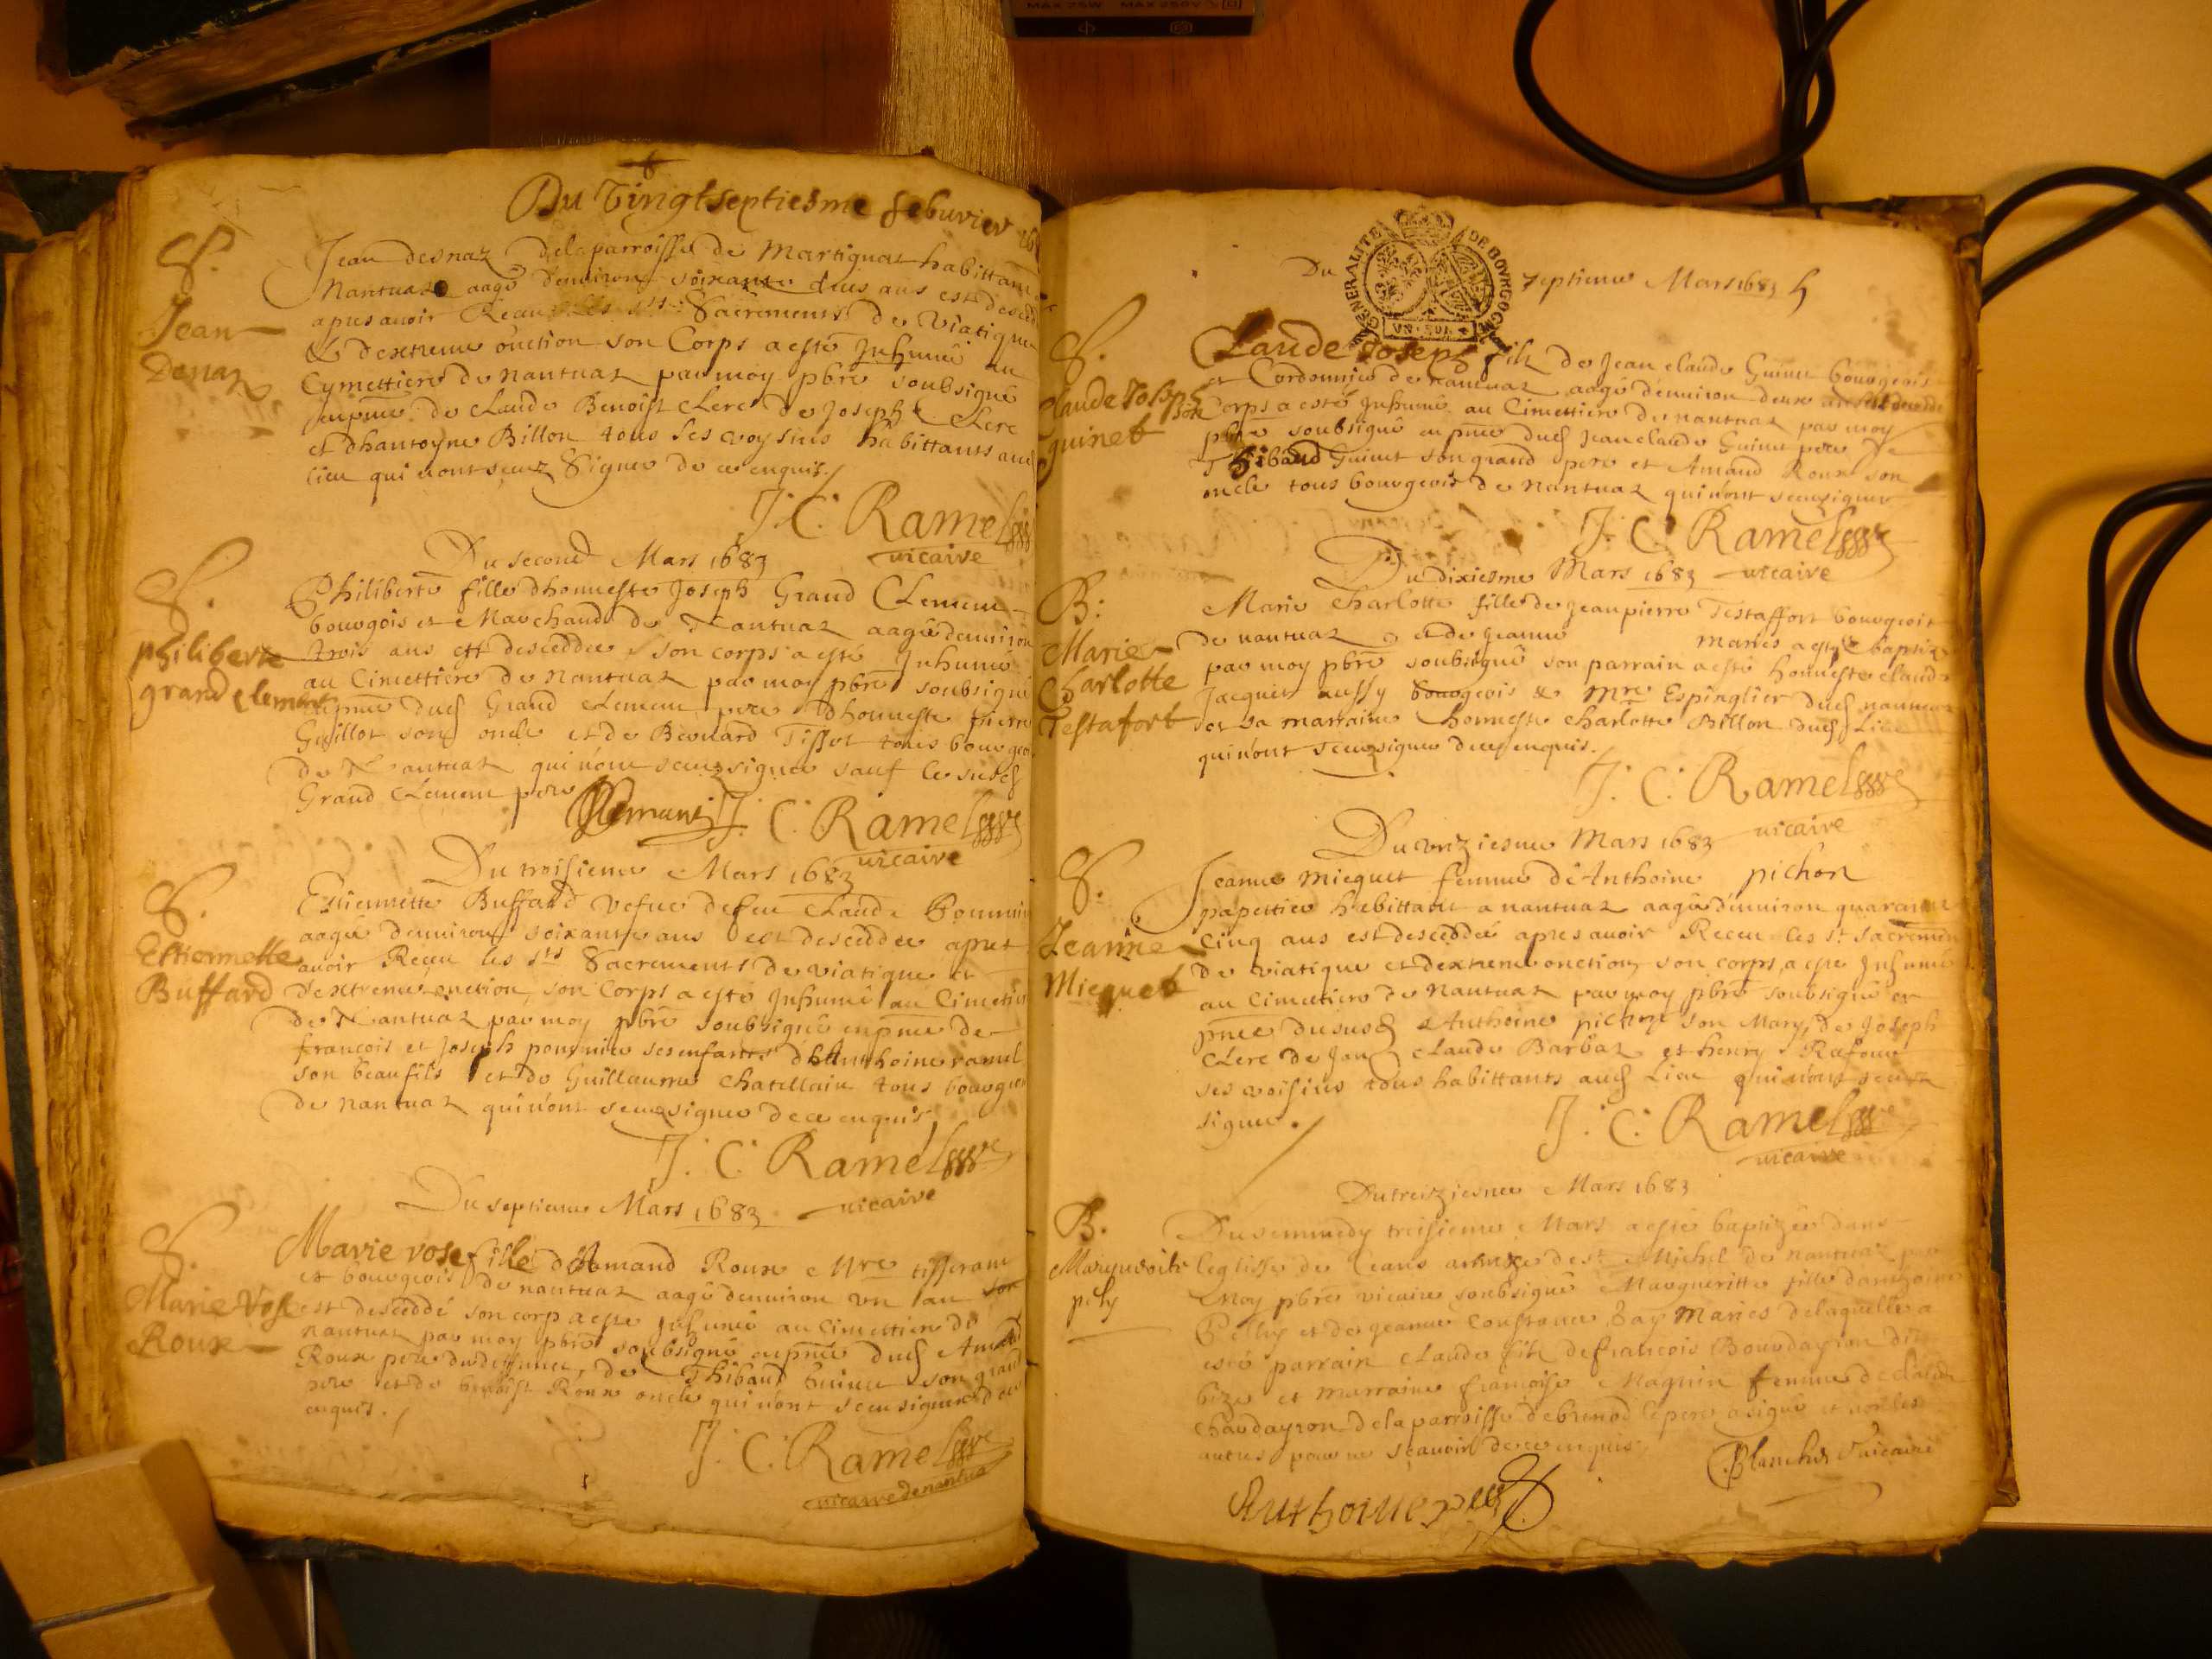 MAX 25W MAX 250V
Du Vingtseptiesme febuvrier
S.
Jean
Denaz
Jean desnaz de la parroisse de Martignat habittant
Nantuaz aagé denuiron soixante dix ans est desceddé
apres auoir Receu les sts Sacrements de Viatique
& dextreme onction son Corps a esté Inhumé au
Cymettiere de nantuaz par moy pbre soubsigné
enpnce de Claude Benoist Clerc de Joseph Clerc
et dhantoyne Billon tous ses voysins habittants aud
lieu qui nont sceuz Signer de ce enquis.
J. C. Ramel
vicaire
Du second Mars 1683
S.
philiberte
grand clement
Philiberte fille dhonneste Joseph Grand Clement
bourgois et Marchand de Nantuaz aagée denuiron
trois ans est desceddee son corps a esté Inhumé
au Cimettiere de Nantuaz par moy pbre soubsigné
enpnce dud Grand Clement pere dhonneste pierre
Guillot son oncle et de Bernard Tissot tous bourgeois
de Nantuaz qui nont sceuz signer sauf le susd
Grand Clement pere
J. C. Ramel
vicaire
Du troisieme Mars 1683
S.
Estiennette
Buffard
Estiennette Buffard Vefue defeu Claude Pommier
aagée denuiron soixante ans est desceddee apres
auoir Receu les sts Sacrements de viatique et
dextreme onction son Corps a esté Inhumé au Cimettiere
de Nantuaz par moy pbre soubsigné enpnce de
francois et Joseph pommier ses enfants dhAnthoine ramel
son beaufils et de Guillaume Chatellain tous bourgeois
de nantuaz qui nont sceuz signer de ce enquis
J. C. Ramel
vicaire
Du septieme Mars 1683
S.
Marie Rose
Roux
Marie rose fille dAmand Roux Mre tisserant
et bourgeois de nantuaz aagé denuiron vn an
est desceddé son corp a este Inhumé au cimettiere de
nantuaz par moy pbre soubsigné enpnce dud Amand
Roux pere de Thibaud Guinet son grand
pere et de benoist Roux oncle qui nont sceu signer de ce
enquis.
J. C. Ramel
vicaire de nantua
GENERALITE DE BOVRGOGNE
VN SOL
Du septieme Mars 1683
S.
Claude Joseph
guinet
Claude Joseph filz de Jean claude Guinet bourgeois
et Cordonnier de nantuaz aagé denuiron deux ans est desceddé
son Corps a esté Inhumé au Cimettiere de nantuaz par moy
pbre soubsigné en pnce dud Jean claude Guinet pere de
Thibaud Guinet son grand pere et Amand Roux son
oncle tous bourgeois de nantuaz qui nont sceuz signer
J. C. Ramel
vicaire
Du dixiesme Mars 1683
B:
Marie
Charlotte
Testafort
Marie Charlotte fille de Jean pierre Testaffort bourgeois
de nantuaz et de Jeanne mariés a esté baptizé
par moy pbre soubsigné son parrain a esté honneste claude
Jacquier aussy bourgeois & Mre Espinglier dud nantuaz
et sa marraine honneste charlotte Billon dud Lieu
qui nont sceuz signer de ce enquis.
J. C. Ramel
vicaire
Du vnziesme Mars 1683
S.
Jeanne
Miequet
Jeanne Miequet femme de Anthoine pichon
papettier habittant a nantuaz aagée denuiron quarante
cinq ans est desceddeé apres auoir Receu les st sacrements
de viatique et dextreme onction son corps a este Inhumé
au Cimettiere de Nantuaz par moy pbre soubsigné en
pnce du susd Anthoine pichon son Mary, de Joseph
Clerc de Jean Claude Barbaz et henry
ses voisins tous habittants aud Lieu qui nont sceuz
signer.
J. C. Ramel
vicaire
Du treizziesme Mars 1683
B.
Du semmedy treisieme Mars a esté baptizée dans
leglisse de annexe de st Michel de nantuaz par
Moy pbre vicaire soubsigné Margueritte fille danthoine
Pelley et de Jeanne Constance Jay Mariés de laquelle a
esté parrain Claude filz de francois Bourdayron dit
bize et marraine francoise Magnin femme de claude
chaudayron de la parroisse de brenod le pere a signé et non les
autres pour ne scauoir de ce enquis
Blanchet vicaire
Anthoine